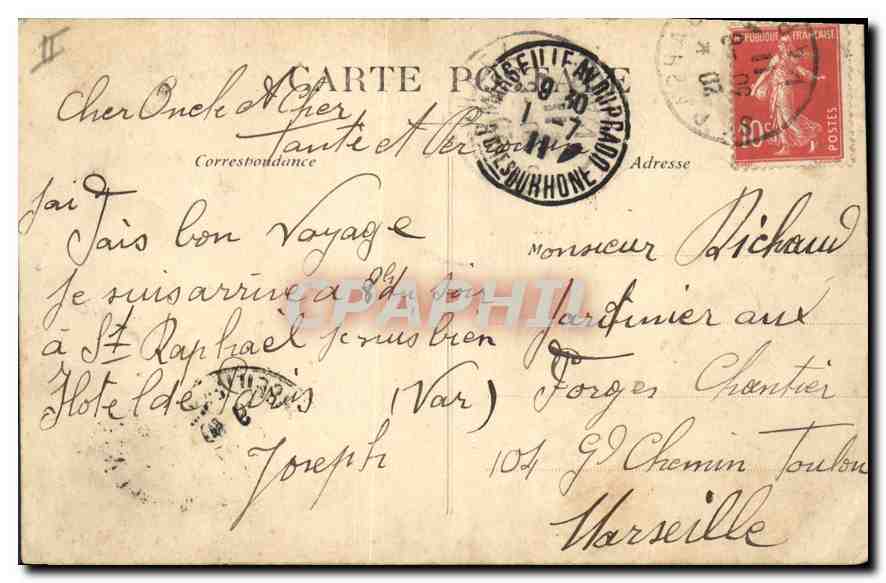 II
CARTE POSTALE
Cher Oncle et Cher
Tante et
Correspondance
Adresse
MARSEILLE-AV. DU PRADO
9 30
7 - 7
11
BCHES DU RHONE
REPUBLIQUE FRANÇAISE
10c
POSTES
jai
Fais bon Voyage
je suis arrive a 8h du Soir
à St Raphaël je suis bien
Hotel de Paris (Var)
Joseph
Monsieur Richaud
Jardinier aux
Forges Chantier
104 Gd Chemin Toulon
Marseille
CPAPHIL